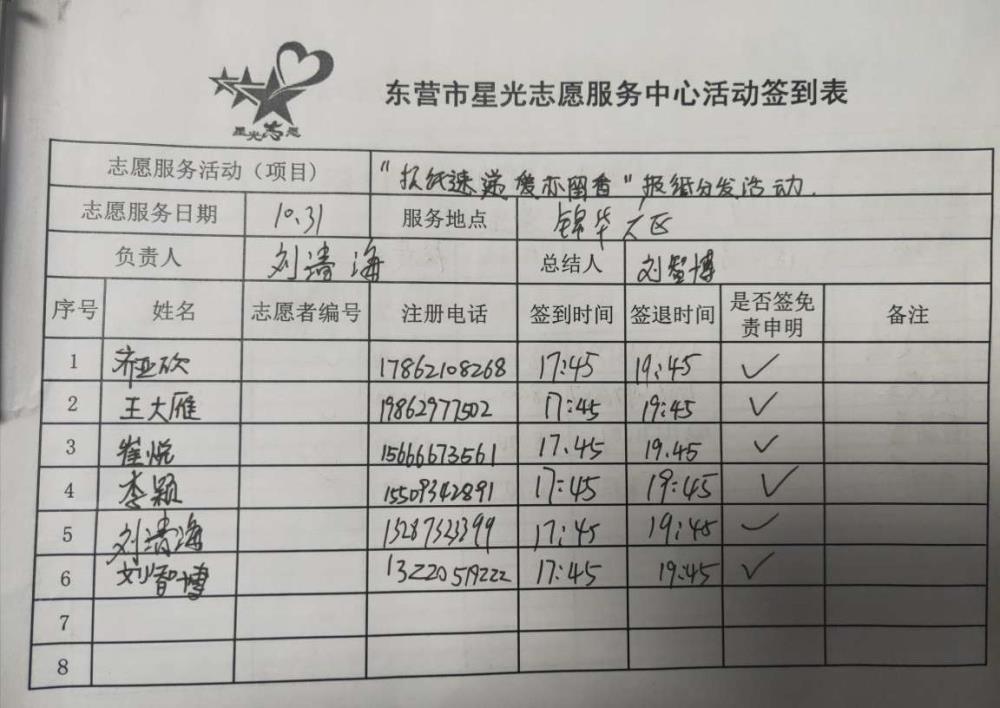 星光志愿
东营市星光志愿服务中心活动签到表
志愿服务活动（项目） "报纸速递 爱亦留香"报纸分发活动.
志愿服务日期 10.31 服务地点 锦华大区
负责人 刘清海 总结人 刘智博
序号 姓名 志愿者编号 注册电话 签到时间 签退时间 是否签免责申明 备注
1 齐亚欣 17862108268 17:45 19:45 ✓
2 王大雁 19862977502 17:45 19:45 ✓
3 崔悦 15666673561 17.45 19.45 ✓
4 李颖 15509342891 17:45 19:45 ✓
5 刘清海 13287323399 17:45 19:45 ✓
6 刘智博 13220519222 17:45 19:45 ✓
7
8